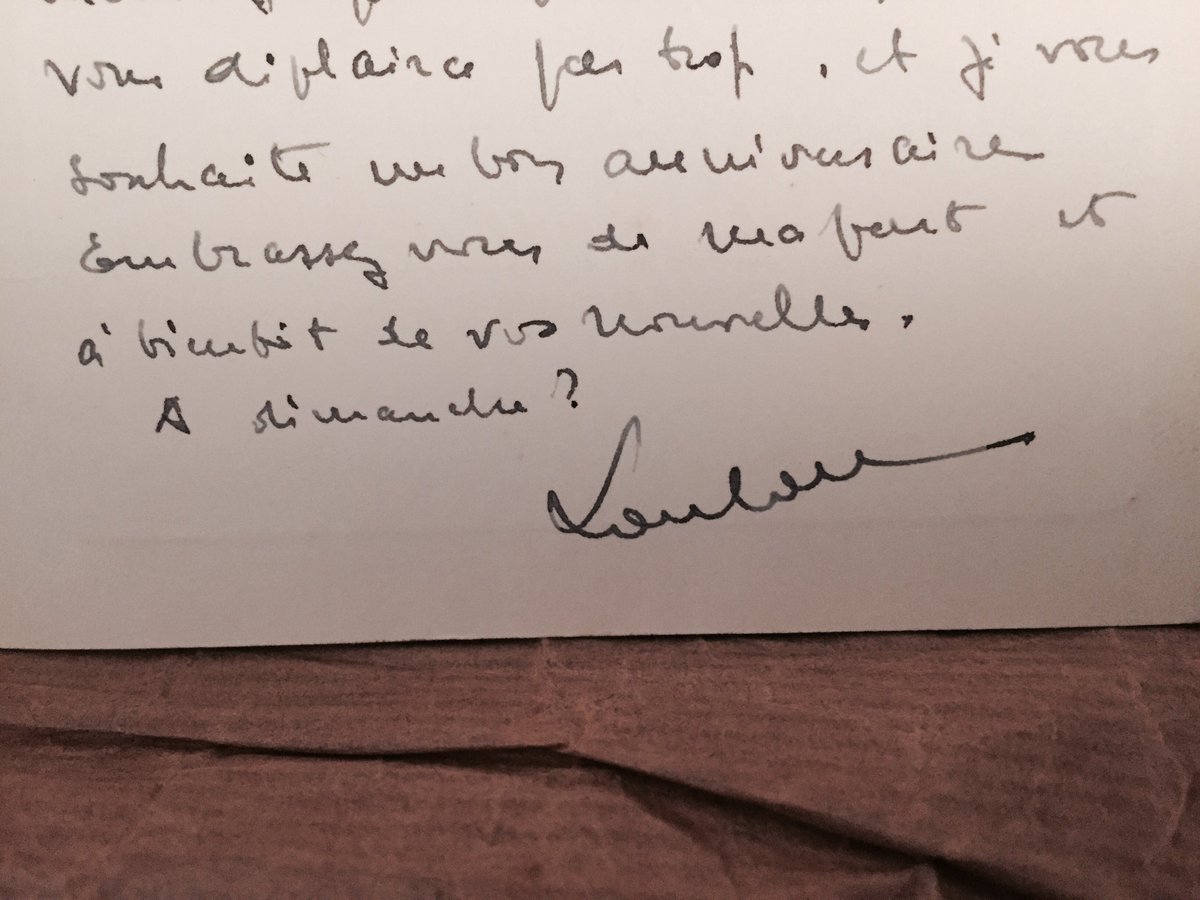 vous déplaire pas trop, et je vous
souhaite un bon anniversaire
Embrassez vous de ma part et
à bientôt de vos nouvelles.
A dimanche ?
Loulou